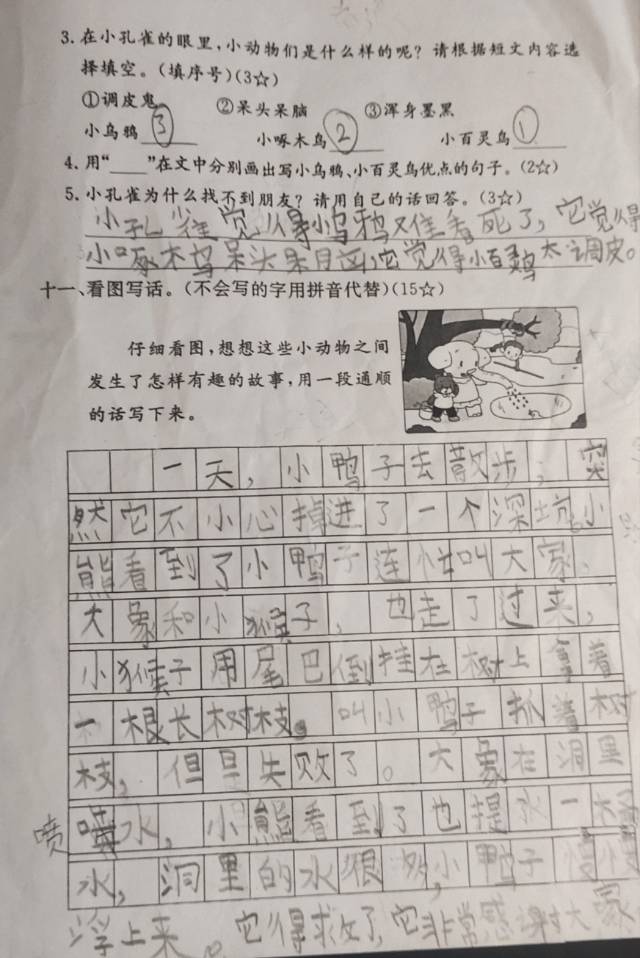 3. 在小孔雀的眼里,小动物们是什么样的呢?请根据短文内容选
择填空。(填序号)(3☆)
①调皮鬼 ②呆头呆脑 ③浑身墨黑
小乌鸦 3 小啄木鸟 2 小百灵鸟 1
4. 用“____”在文中分别画出写小乌鸦、小百灵鸟优点的句子。(2☆)
5. 小孔雀为什么找不到朋友?请用自己的话回答。(3☆)
小孔雀觉得小乌鸦难看死了,它觉得
小啄木鸟呆头呆脑,它觉得小百灵鸟太调皮。
十一、看图写话。(不会写的字用拼音代替)(15☆)
仔细看图,想想这些小动物之间
发生了怎样有趣的故事,用一段通顺
的话写下来。
一天,小鸭子去散步,突
然它不小心掉进了一个深坑。小
熊看到了小鸭子连忙叫大家,
大象和小猴子,也走了过来,
小猴子用尾巴倒挂在树上拿着
一根长树枝。叫小鸭子抓着树
枝,但是失败了。大象在洞里
喷水,小熊看到了也提水一
喷
水,洞里的水很多,小鸭子慢慢
浮上来。它得救了,它非常感谢大家